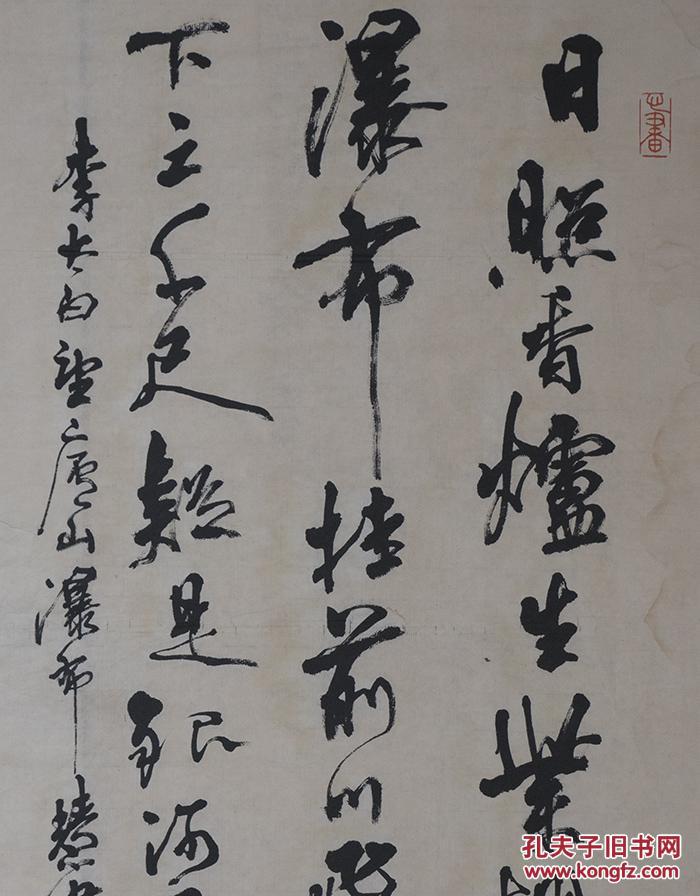 日照香爐生紫
瀑布挂前川飛
下三千尺疑是銀河
李太白望廬山瀑布
孔夫子旧书网
www.kongfz.com